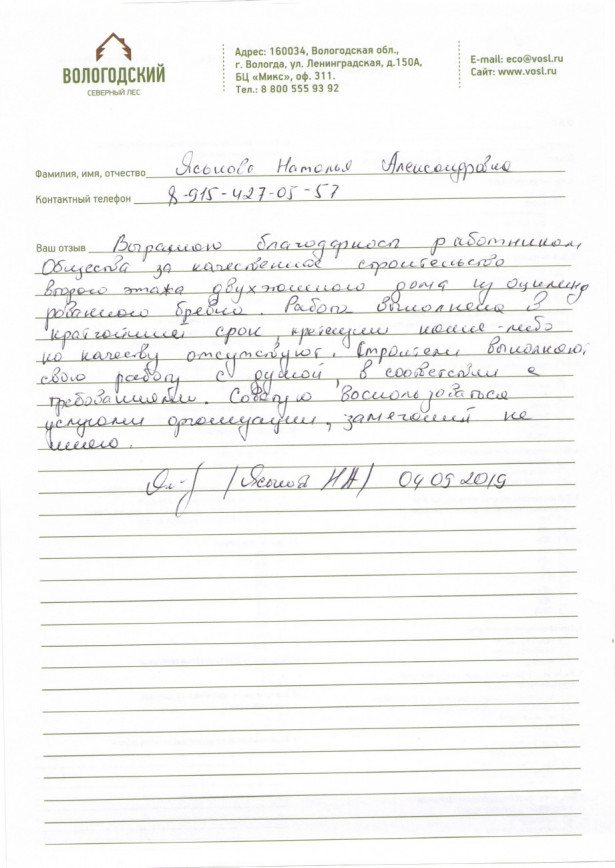 ВОЛОГОДСКИЙ
СЕВЕРНЫЙ ЛЕС
Адрес: 160034, Вологодская обл.,
г. Вологда, ул. Ленинградская, д.150А,
БЦ «Микс», оф. 311.
Тел.: 8 800 555 93 92
E-mail: eco@vosl.ru
Сайт: www.vosl.ru
Фамилия, имя, отчество Наталья Александровна
Контактный телефон 8-915-427-05-57
Ваш отзыв Выражаю благодарность работникам
Общества за качественное строительство
второго этажа двухэтажного дома из оцилинд
рованного бревна. Работа выполнена в
кратчайший срок, претензии какие-либо
по качеству отсутствуют. Строители выполняют
свою работу с душой, в соответствии с
требованиями. Советую воспользоваться
услугами организации, замечаний не
имею.
04 09 2019